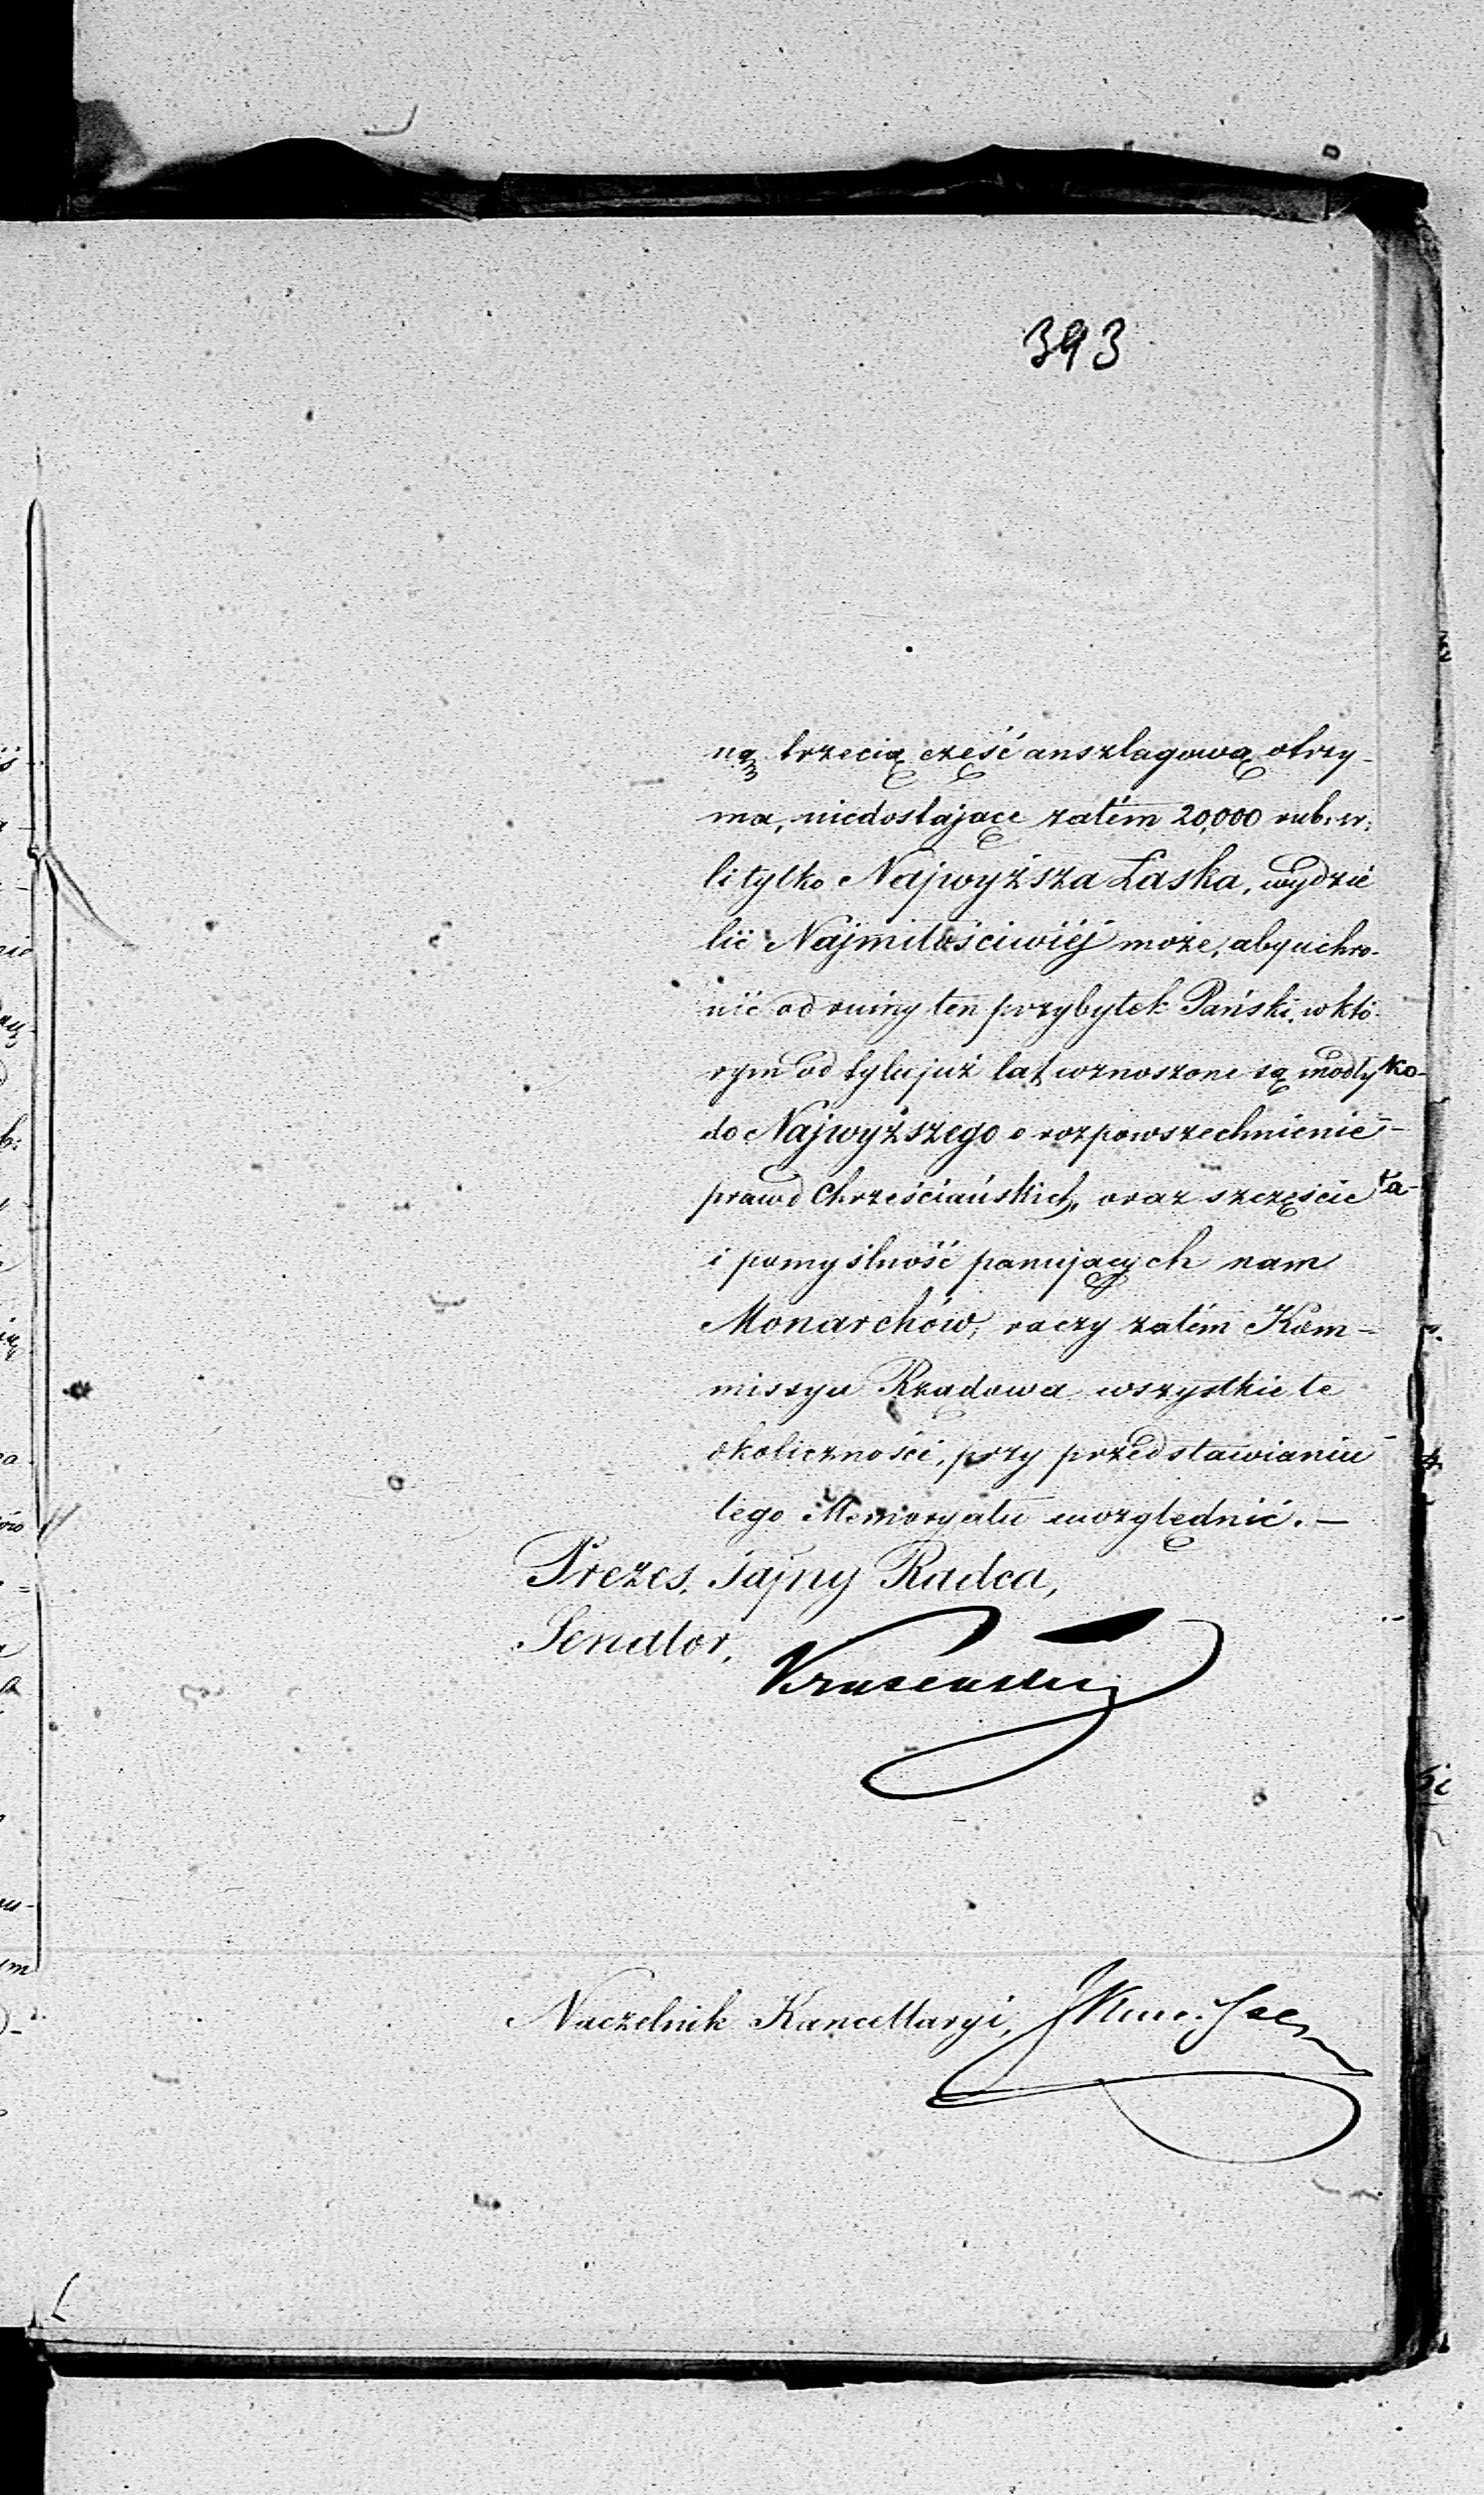 393
ną trzecią cześć anszlagową otrzy-
ma, niedostające zatém 20,000 rub. sr.
li tylko Najwyższa Łaska, wydzie
lić Najmiłościwiéj może, aby uchro-
nić od ruiny ten przybytek Pański, w któ-
rym od tylu już lat wznoszone są modły
do Najwyższego o rozpowszechnienie
prawd Chrześciańskich, oraz szczęście
i pomyślność panujących nam
Monarchów, raczy zatém Kom-
missya Rządowa wszystkie te
okoliczności, przy przedstawianiu
tego Memoryału uwzględnić. —
Prezes, Tajny Radca,
Senator,
Naczelnik Kancellaryi,